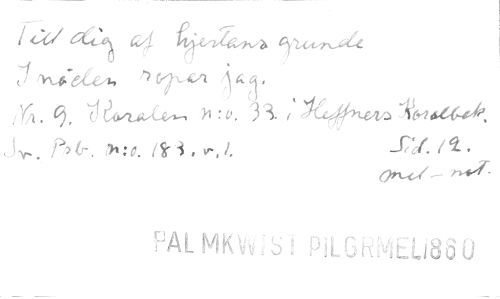 Till dig af hjertans grunde
I nöden ropar jag.
Nr. 9. Koralen n:o. 33. i Heffners Koralbok.
Sv. Psb. n:o. 183. v. 1. Sid. 12.
mel-not.
PALMKWIST PILGRMEL1860